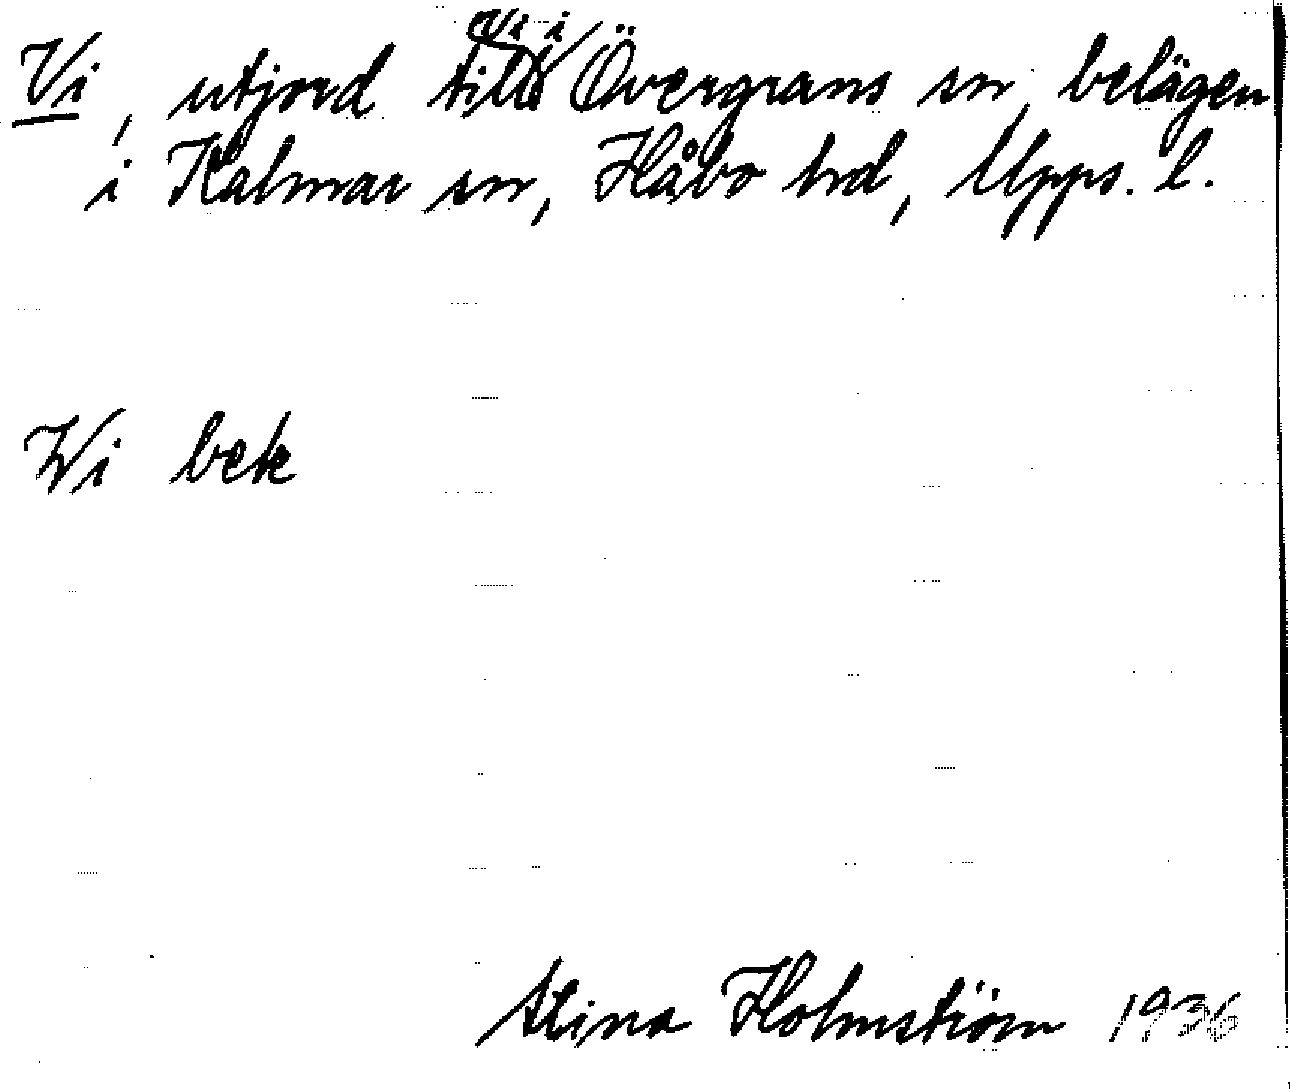 Vi, utjord till Vi i Övergrans sn, belägen
i Kalmar sn, Håbo hd, Upps. l.
Vi bek
Stina Holmström 1936